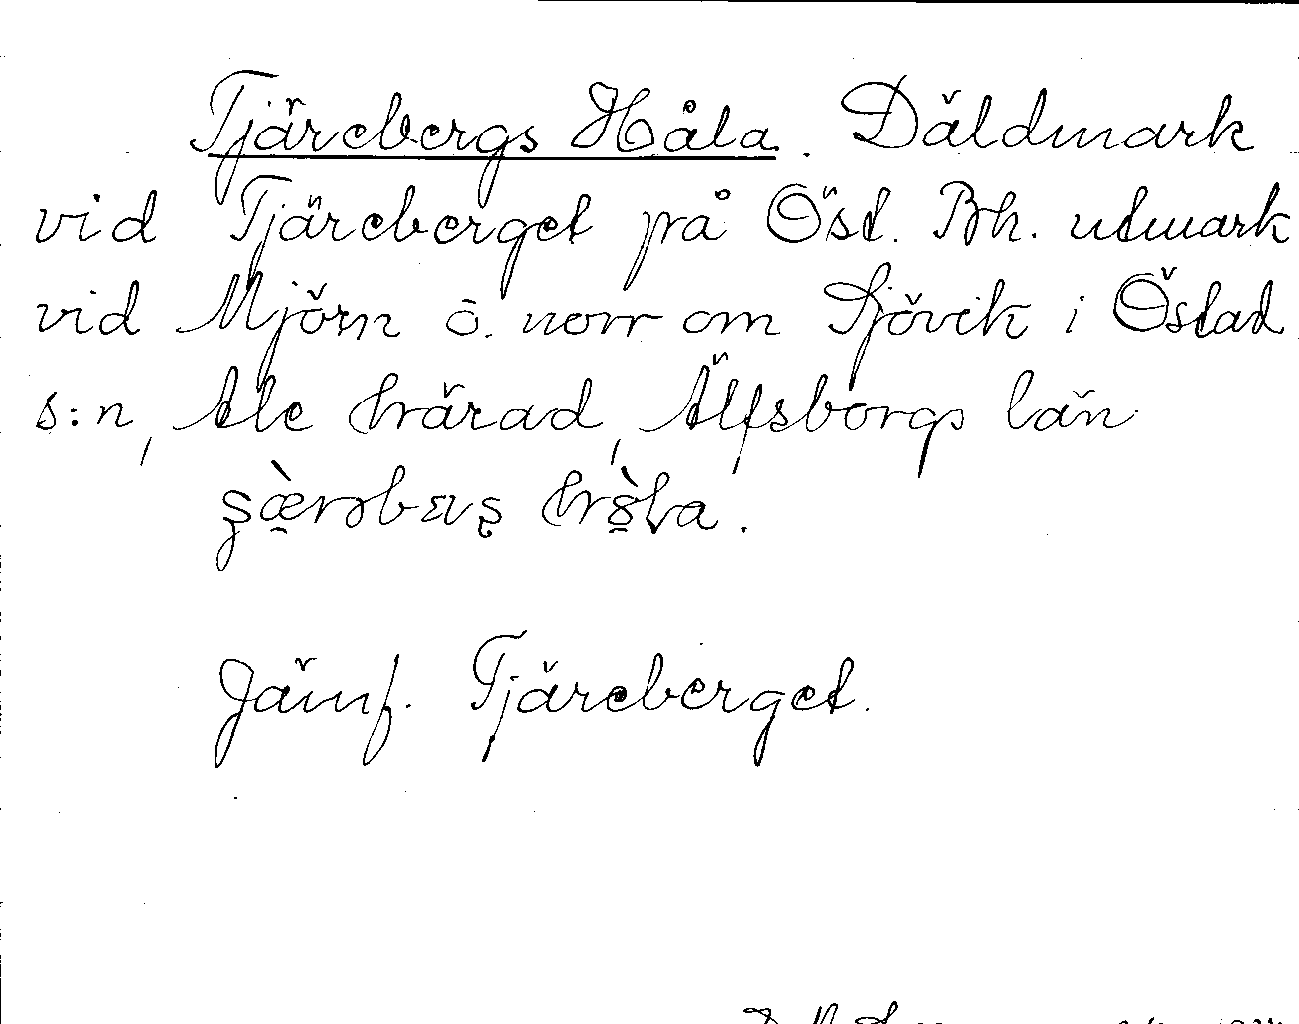 Tjärebergs Håla. Däldmark
vid Tjäreberget på Öst. Bh. utmark
vid Mjörn o. norr om Sjövik i Östad
s:n, Ale härad, Älfsborgs län
Jämf. Tjäreberget.